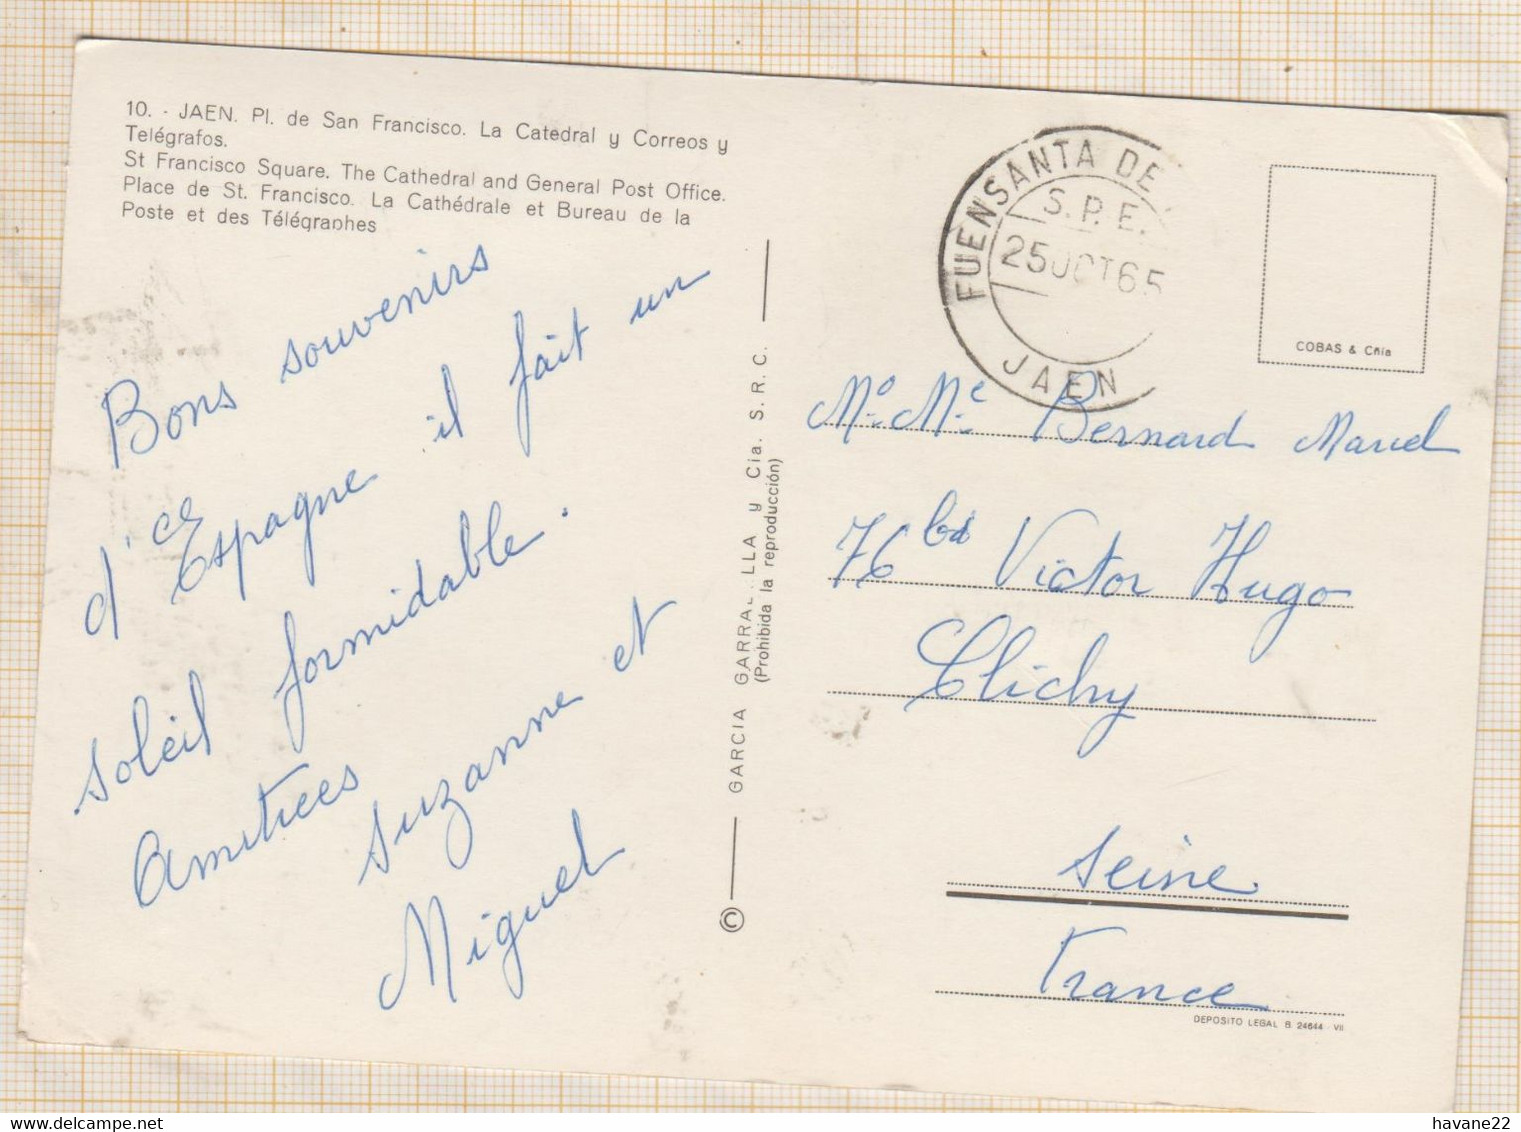 10. - JAEN. Pl. de San Francisco. La Catedral y Correos y
Telégrafos.
St Francisco Square. The Cathedral and General Post Office.
Place de St. Francisco. La Cathédrale et Bureau de la
Poste et des Télégraphes
Bons souvenirs
d'Espagne il fait un
soleil formidable.
Amitiees
Suzanne et
Miguel
© GARCIA GARRABELLA y Cia. S. R. C.
(Prohibida la reproducción)
FUENSANTA DE
S.P.E.
25 OCT 65
JAEN
COBAS & Cñia
Mo. Me. Bernard Marcel
76 bis Victor Hugo
Clichy
Seine
France
DEPOSITO LEGAL B 24644 - VII
havane22